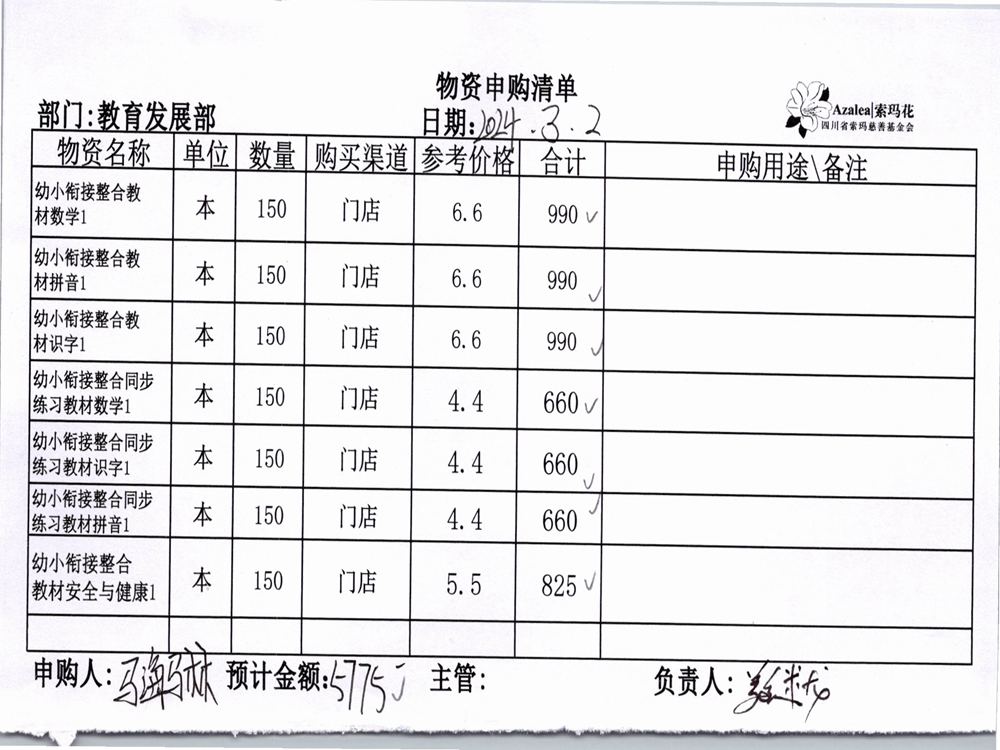 物资申购清单
Azalea|索玛花
四川省索玛慈善基金会
部门:教育发展部 日期:2024.3.2
物资名称 单位 数量 购买渠道 参考价格 合计 申购用途\备注
幼小衔接整合教
材数学1 本 150 门店 6.6 990
幼小衔接整合教
材拼音1 本 150 门店 6.6 990
幼小衔接整合教
材识字1 本 150 门店 6.6 990
幼小衔接整合同步
练习教材数学1 本 150 门店 4.4 660
幼小衔接整合同步
练习教材识字1 本 150 门店 4.4 660
幼小衔接整合同步
练习教材拼音1 本 150 门店 4.4 660
幼小衔接整合
教材安全与健康1 本 150 门店 5.5 825
申购人: 预计金额:5775 主管: 负责人: